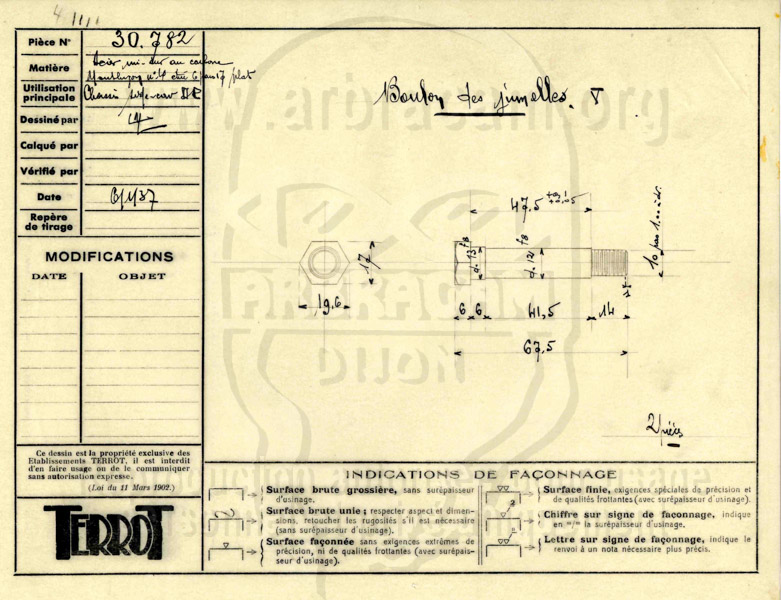 Pièce N° 30.782
Matière Acier mi-dur au carbone
Montluçon n°4 étiré 6 pans 17 s/plat
Utilisation
principale Chassis
Dessiné par
Calqué par
Vérifié par
Date 6/1/37
Repère
de tirage
MODIFICATIONS
DATE OBJET
Ce dessin est la propriété exclusive des
Etablissements TERROT, il est interdit
d'en faire usage ou de le communiquer
sans autorisation expresse.
(Loi du 11 Mars 1902.)
TERROT
Boulon des jumelles. V
47.5 +0,1 +0.05
17
19.6
f8
d. 13
d. 12 f8
10 pas 1.00
6 6 41,5 14
67,5
2 pièces
www.arbracam.org
ARBRACAM
DIJON
INDICATIONS DE FAÇONNAGE
Surface brute grossière, sans surépaisseur
d'usinage.
Surface brute unie ; respecter aspect et dimen-
sions, retoucher les rugosités s'il est nécessaire
(sans surépaisseur d'usinage).
Surface façonnée sans exigences extrêmes de
précision, ni de qualités frottantes (avec surépais-
seur d'usinage).
Surface finie, exigences spéciales de précision et
de qualités frottantes (avec surépaisseur d'usinage).
Chiffre sur signe de façonnage, indique
en "/" la surépaisseur d'usinage.
Lettre sur signe de façonnage, indique le
renvoi à un nota nécessaire plus précis.